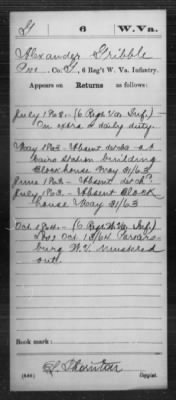 G 6 W.Va.
Alexander Gribble
Pvt., Co. G, 6 Reg't W. Va. Infantry.
Appears on Returns as follows:
July 1863.- (6 Regt Va. Inf.)-
On extra or daily duty.
May 1863- Absent det. at
Cairo Station building
Blockhouse May 31/63
June 1863- Absent det'd.
July 1863.- Absent Block
house May 31/63
Oct 1864.- (6 Regt W.Va. Inf.)
Oct 1864 Parkers-
burg W.V. Mustered
out.
Book mark:
Thornton
(546) Copyist.